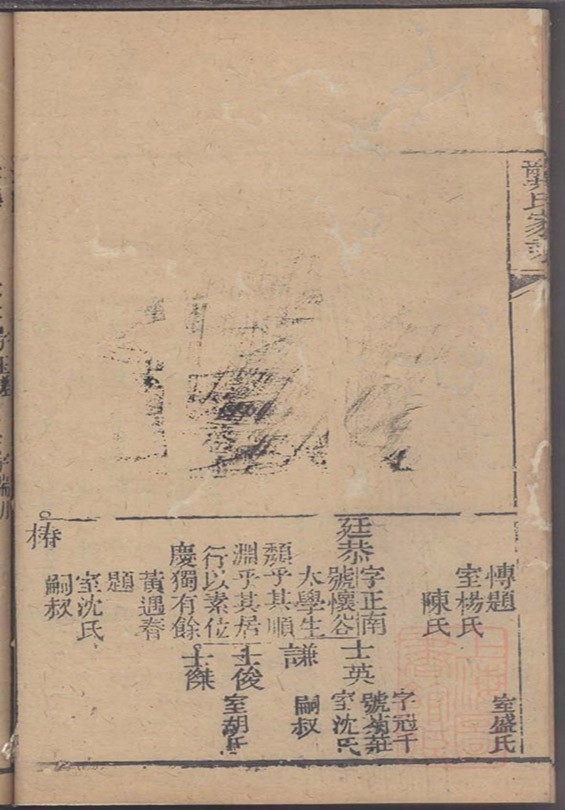 龔氏家譜
傳題
室楊氏
陳氏
室盛氏
廷恭
字正南
號懷谷
太學生
頹乎其順
淵乎其居
行以素位
慶獨有餘
黃遇春
題
室沈氏
嗣叔
士英
字冠千
號菊莊
室沈氏
謙
嗣叔
士俊
室胡氏
士傑
椿